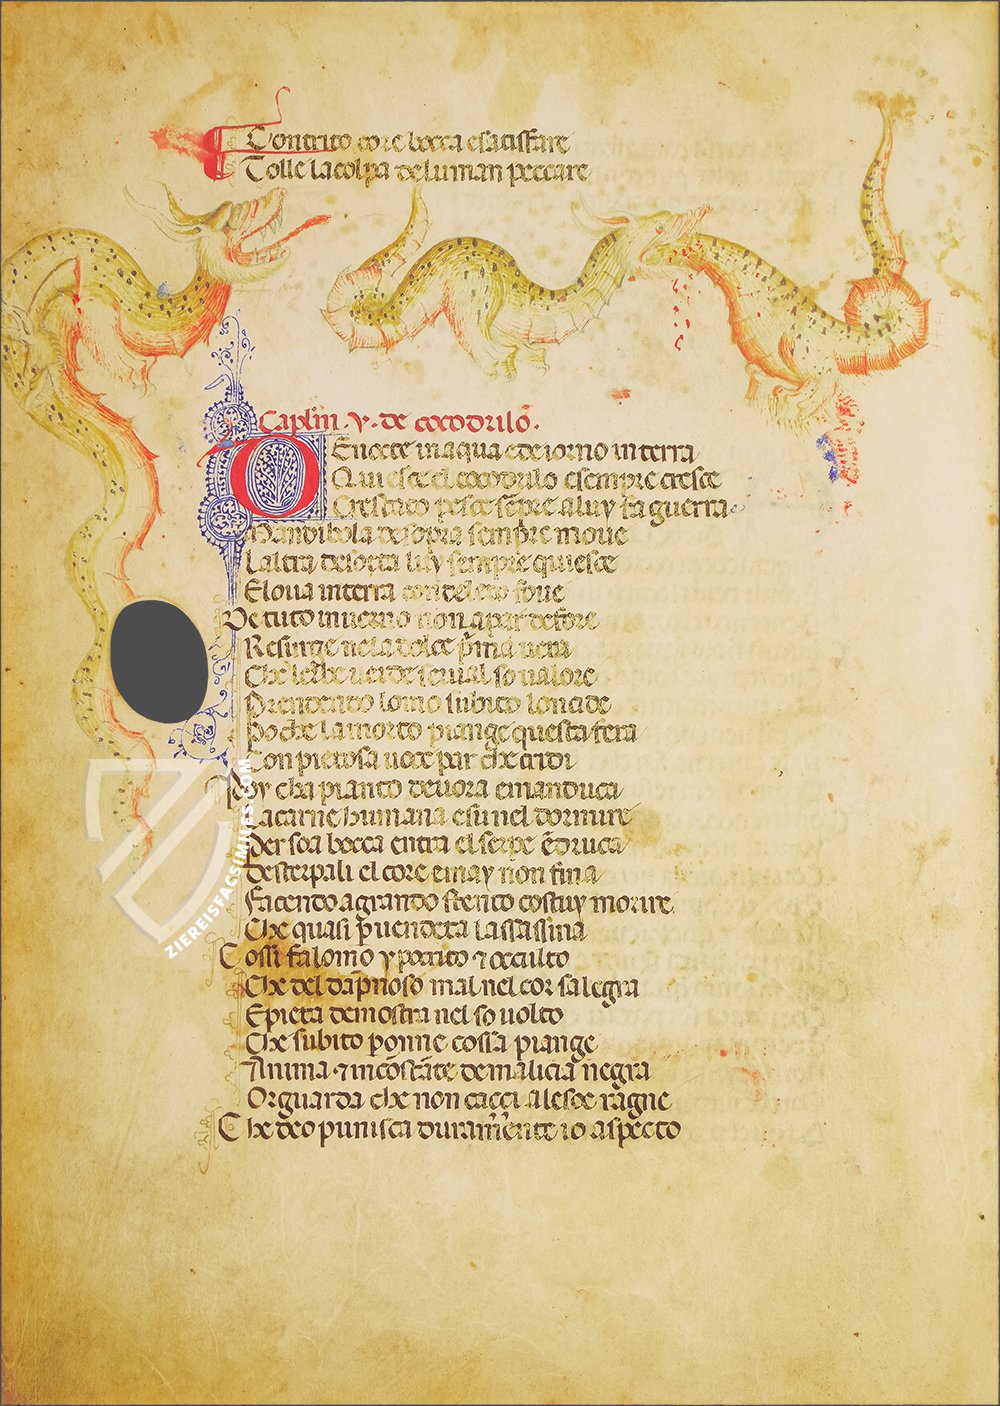 Contrito core bocca esatisffare
Tolle la colpa deluman peccare
Caplm .v. de cocodrilo.
DE nocte in aqua ede iorno in terra
Qui esce el cocodrilo e sempre cresce
Cresciuto pesce sēpre a luy fa guerra
Mandibola de sopra sempre moue
Laltra de sotta luy sempre quiesce
E loua in terra con del feue
De tuto inuerno non apar de fore
Resurge nela dolce pͥma uera
Che lerbe uerde serual so ualore
Prendendo lomo subito loncide
Poche la morto piange questa fera
Con pietosa uoce par che cridi
Poy cha pianto deuora e manduca
La carne humana e su nel dormire
Per soa bocca entra el serpe ēdruca
Desterpali el core e may non fina
Facendo a grando stento costuy morire
Che quasi ꝑ uendeta lassassina
Cossi fa lomo ypocrito ⁊ occulto
Che del dāpnoso mal nel cor salegra
E pieta demostra nel so uolto
Che subito ꝑ onne cossa piange
Anima ⁊ incōstāte de malicia negra
Or guarda che non cacci a lesce ragne
Che deo punisca duramēte io aspecto
ZIEREISFACSIMILES.COM